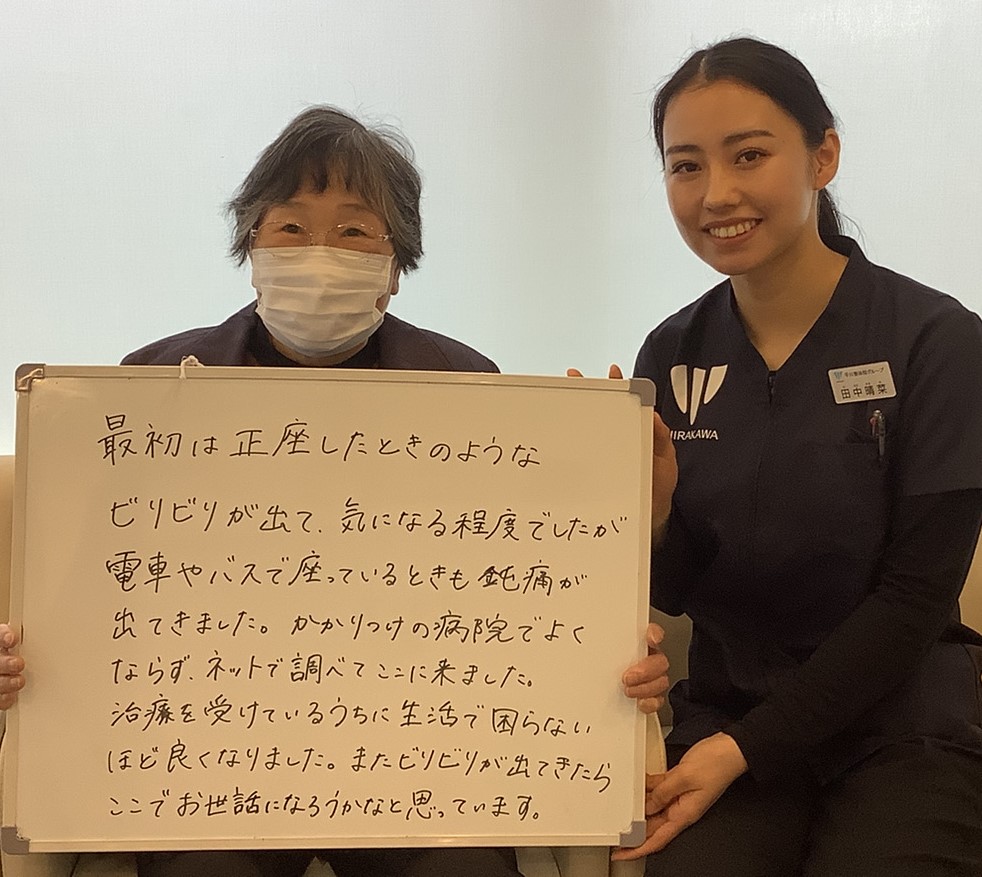 最初は正座したときのような
ビリビリが出て、気になる程度でしたが
電車やバスで座っているときも鈍痛が
出てきました。かかりつけの病院でよく
ならず、ネットで調べてここに来ました。
治療を受けているうちに生活で困らない
ほど良くなりました。またビリビリが出てきたら
ここでお世話になろうかなと思っています。
HIRAKAWA
田中晴菜